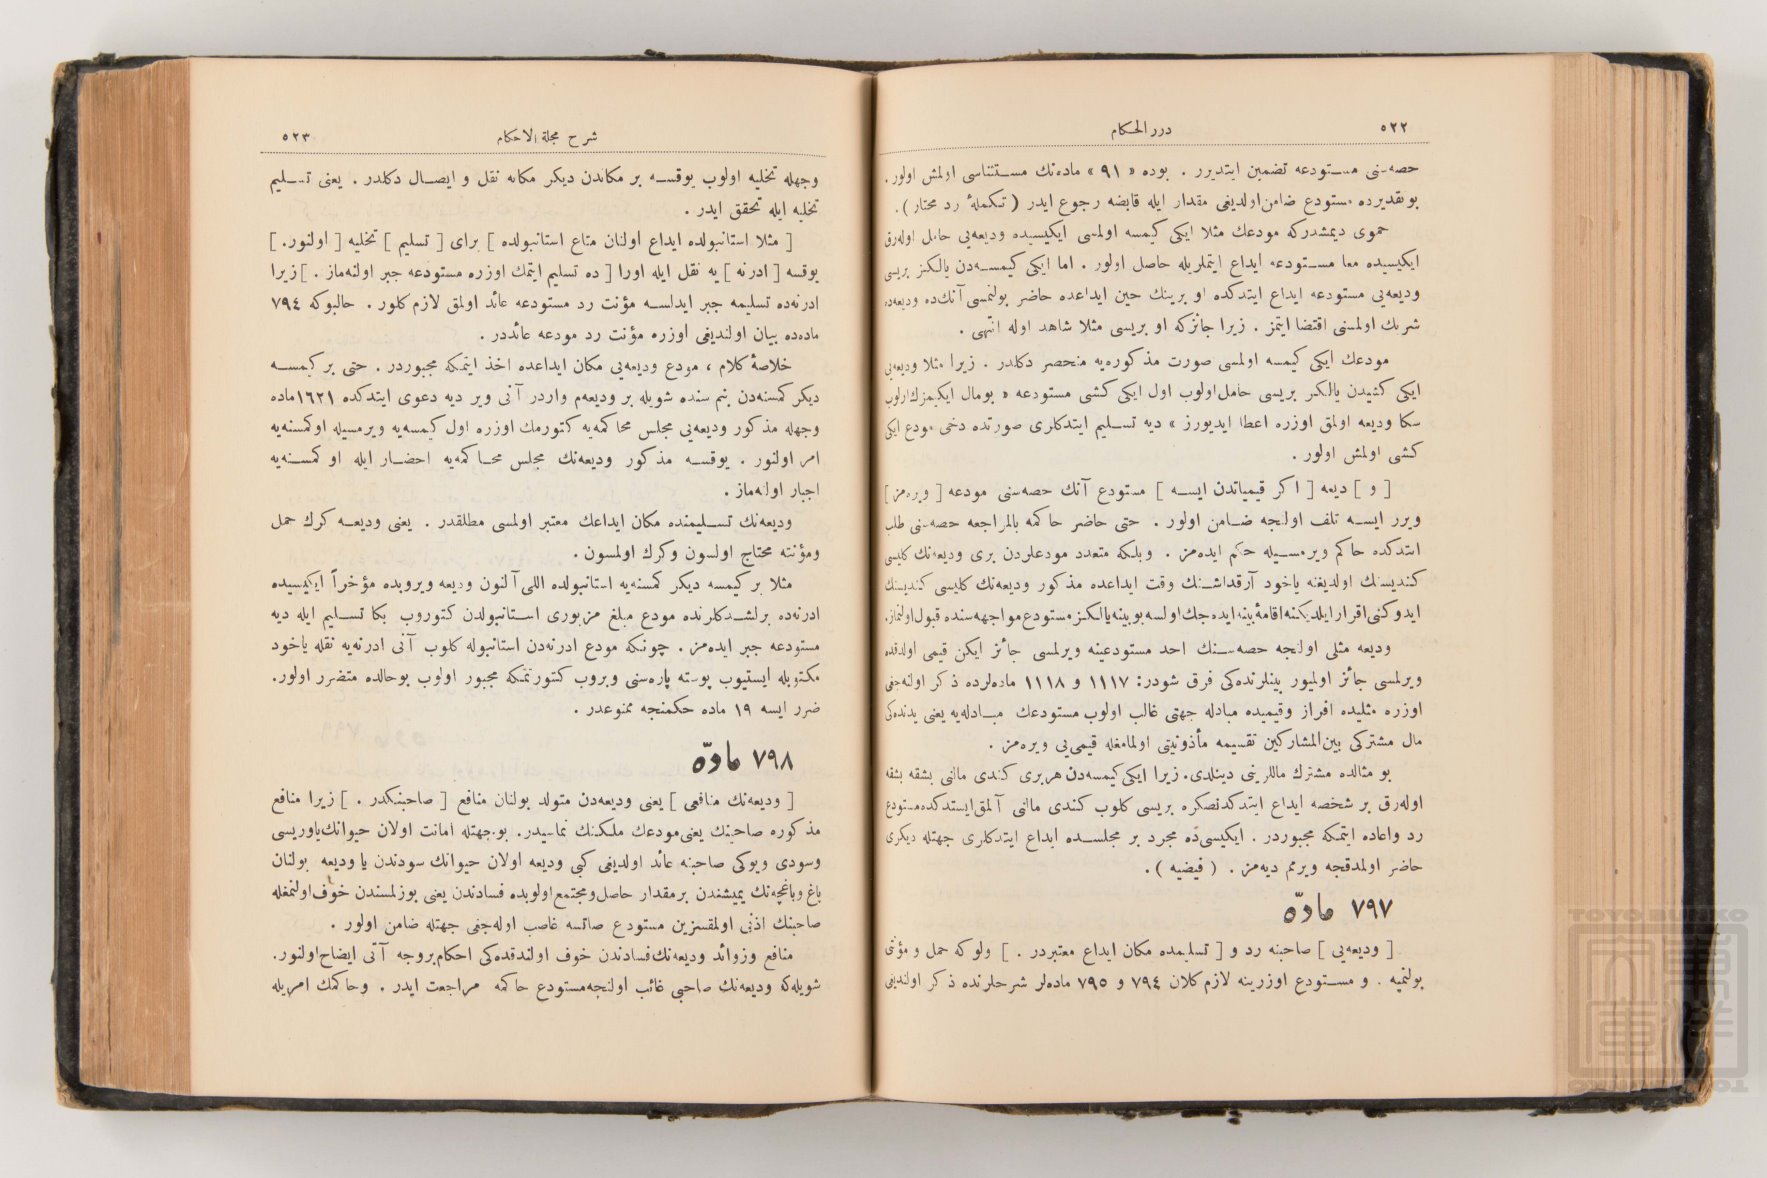 ٥٢٢
درر الحكام
حصه‌سنی مستودعه تضمین ایتدیرر . بوده « ٩١ » ماده‌نك مستثناسی اولمش اولور .
بو تقدیرده مستودع ضامن اولدیغی مقدار ایله قابضه رجوع ایدر ( تکملهٔ رد محتار ) .
حموی دیمشدرکه مودعك مثلا ایکی کیمسه اولمسی ایکیسیده ودیعه‌یی حامل اوله‌رق
ایکیسیده معا مستودعه ایداع ایتملریله حاصل اولور . اما ایکی کیمسه‌دن یالکز بریسی
ودیعه‌یی مستودعه ایداع ایتدکده او برینك حین ایداعده حاضر بولنمسی آنك‌ده ودیعه‌ده
شریك اولمسنی اقتضا ایتمز . زیرا جائزکه او بریسی مثلا شاهد اوله انتهی .
مودعك ایکی کیمسه اولمسی صورت مذکوره‌یه منحصر دکلدر . زیرا مثلا ودیعه‌یی
ایکی کشیدن یالکز بریسی حامل اولوب اول ایکی کشی مستودعه « بومال ایکیمزك اولوب
سکا ودیعه اولمق اوزره اعطا ایدیورز » دیه تسلیم ایتدکلری صورتده دخی مودع ایکی
کشی اولمش اولور .
[ و ] دیعه [ اکر قیمیاتدن ایسه ] مستودع آنك حصه‌سنی مودعه [ ویره‌مز ]
ویرر ایسه تلف اولنجه ضامن اولور . حتی حاضر حاکمه بالمراجعه حصه‌سنی طلب
ایتدکده حاکم ویرمسیله حکم ایده‌مز . وبلکه متعدد مودعلردن بری ودیعه‌نك کلیسی
کندیسنك اولدیغنه یاخود آرقداشنك وقت ایداعده مذکور ودیعه‌نك کلیسی کندیسنك
ایدوکنی اقرار ایلدیکنه اقامهٔ بینه ایده‌جك اولسه بو بینه یالکز مستودع مواجهه‌سنده قبول اولنماز .
ودیعه مثلی اولنجه حصه‌سنك احد مستودعینه ویرلمسی جائز ایکن قیمی اولدقده
ویرلمسی جائز اولمیور بینلرنده‌کی فرق شودر: ١١١٧ و ١١١٨ ماده‌لرده ذکر اولنه‌جغی
اوزره مثلیده افراز وقیمیده مبادله جهتی غالب اولوب مستودعك مبادله‌یه یعنی یدنده‌کی
مال مشترکی بین‌المشارکین تقسیمه مأذونیتی اولمامغله قیمی‌یی ویره‌مز .
بو مثالده مشترك ماللرینی دینلدی. زیرا ایکی کیمسه‌دن هربری کندی مالنی بشقه بشقه
اوله‌رق بر شخصه ایداع ایتدکدنصکره بریسی کلوب کندی مالنی آلمق ایستدکده مستودع
رد واعاده ایتمکه مجبوردر . ایکیسی‌ده مجرد بر مجلسده ایداع ایتدکلری جهتله دیکری
حاضر اولمدقجه ویرمم دیه‌مز . ( فیضیه ) .
٧٩٧ مادّه
[ ودیعه‌یی ] صاحبنه رد و [ تسلیمده مکان ایداع معتبردر . ] ولو که حمل و مؤنتی
بولنمیه . و مستودع اوزرینه لازم کلان ٧٩٤ و ٧٩٥ ماده‌لر شرحلرنده ذکر اولندیغی
شرح مجلة الاحكام
٥٢٣
وجهله تخلیه اولوب یوقسه بر مکاندن دیکر مکانه نقل و ایصال دکلدر . یعنی تسلیم
تخلیه ایله تحقق ایدر .
[ مثلا استانبولده ایداع اولنان متاع استانبولده ] برای [ تسلیم ] تخلیه [ اولنور. ]
یوقسه [ ادرنه ] یه نقل ایله اورا [ ده تسلیم ایتمك اوزره مستودعه جبر اولنه‌ماز . ] زیرا
ادرنه‌ده تسلیمه جبر ایدلسه مؤنت رد مستودعه عائد اولمق لازم کلور . حالبوکه ٧٩٤
ماده‌ده بیان اولندیغی اوزره مؤنت رد مودعه عائددر .
خلاصهٔ کلام ، مودع ودیعه‌یی مکان ایداعده اخذ ایتمکه مجبوردر . حتی بر کیمسه
دیکر کمسه‌دن بنم سنده شویله بر ودیعه‌م واردر آنی ویر دیه دعوی ایتدکده ١٦٢١ ماده
وجهله مذکور ودیعه‌یی مجلس محاکمه‌یه کتورمك اوزره اول کیمسه‌یه ویرمسیله اوکمسنه‌یه
امر اولنور . یوقسه مذکور ودیعه‌نك مجلس محاکمه‌یه احضار ایله او کمسنه‌یه
اجبار اولنه‌ماز .
ودیعه‌نك تسلیمنده مکان ایداعك معتبر اولمسی مطلقدر . یعنی ودیعه کرك حمل
ومؤنته محتاج اولسون وکرك اولمسون .
مثلا بر کیمسه دیکر کمسنه‌یه استانبولده اللی آلتون ودیعه ویروبده مؤخراً ایکیسیده
ادرنه‌ده برلشدکلرنده مودع مبلغ مزبوری استانبولدن کتوروب بکا تسلیم ایله دیه
مستودعه جبر ایده‌مز . چونکه مودع ادرنه‌دن استانبوله کلوب آنی ادرنه‌یه نقله یاخود
مکتوبله ایستیوب پوسته پاره‌سنی ویروب کتورتمکه مجبور اولوب بوحالده متضرر اولور.
ضرر ایسه ١٩ ماده حکمنجه ممنوعدر .
٧٩٨ مادّه
[ ودیعه‌نك منافعی ] یعنی ودیعه‌دن متولد بولنان منافع [ صاحبنکدر . ] زیرا منافع
مذکوره صاحبنك یعنی مودعك ملکنك نماسیدر. بو جهتله امانت اولان حیوانك یاوریسی
وسودی ویوکی صاحبنه عائد اولدیغی کبی ودیعه اولان حیوانك سودندن یا ودیعه بولنان
باغ وباغچه‌نك یمیشندن بر مقدار حاصل ومجتمع اولوبده فسادندن یعنی بوزلمسندن خوف اولنمغله
صاحبنك اذنی اولمقسزین مستودع صاتسه غاصب اوله‌جغی جهتله ضامن اولور .
منافع وزوائد ودیعه‌نك فسادندن خوف اولندقده‌کی احکام بروجه آتی ایضاح اولنور.
شویله‌که ودیعه‌نك صاحبی غائب اولنجه مستودع حاکمه مراجعت ایدر . وحاکمك امریله
TOYO BUNKO